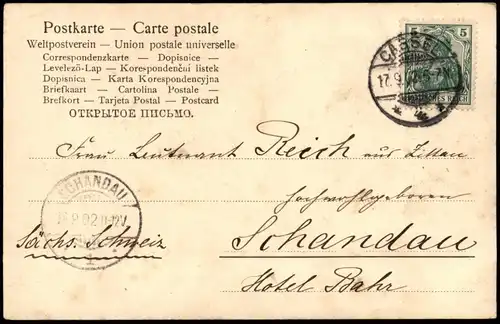 Postkarte — Carte postale
Weltpostverein — Union postale universelle
Correspondenzkarte — Dopisnice —
Levelező-Lap — Korespondenční listek
Dopisnica — Karta Korespondencyjna
Briefkaart — Cartolina Postale —
Brefkort — Tarjeta Postal — Postcard
ОТКРЫТОЕ ПИСЬМО.
5 5
CASSEL
17.9. 5-
REICH
Frau Leutnant Reich aus Zittau
hochwohlgeboren
SCHANDAU
9 02 11-12V
1
Sächs. Schweiz
Schandau
Hotel Bahr